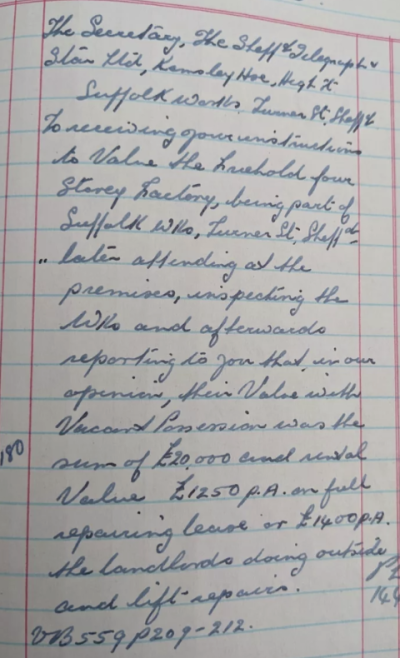 The Secretary, The Sheffd Telegraph &
Star Ltd, Kemsley Hse, High St
Suffolk Works, Turner St. Sheffd
To receiving your instructions
to Value the freehold four
Storey Factory, being part of
Suffolk Wks, Turner St. Sheffd
.. later attending at the
premises, inspecting the
Wks and afterwards
reporting to you that, in our
opinion, their Value with
Vacant Possession was the
180 sum of £20,000 and rental
Value £1250 p.a. on full
repairing lease or £1400 p.a.
the landlords doing outside
and lift repairs.
VB559 p209-212.